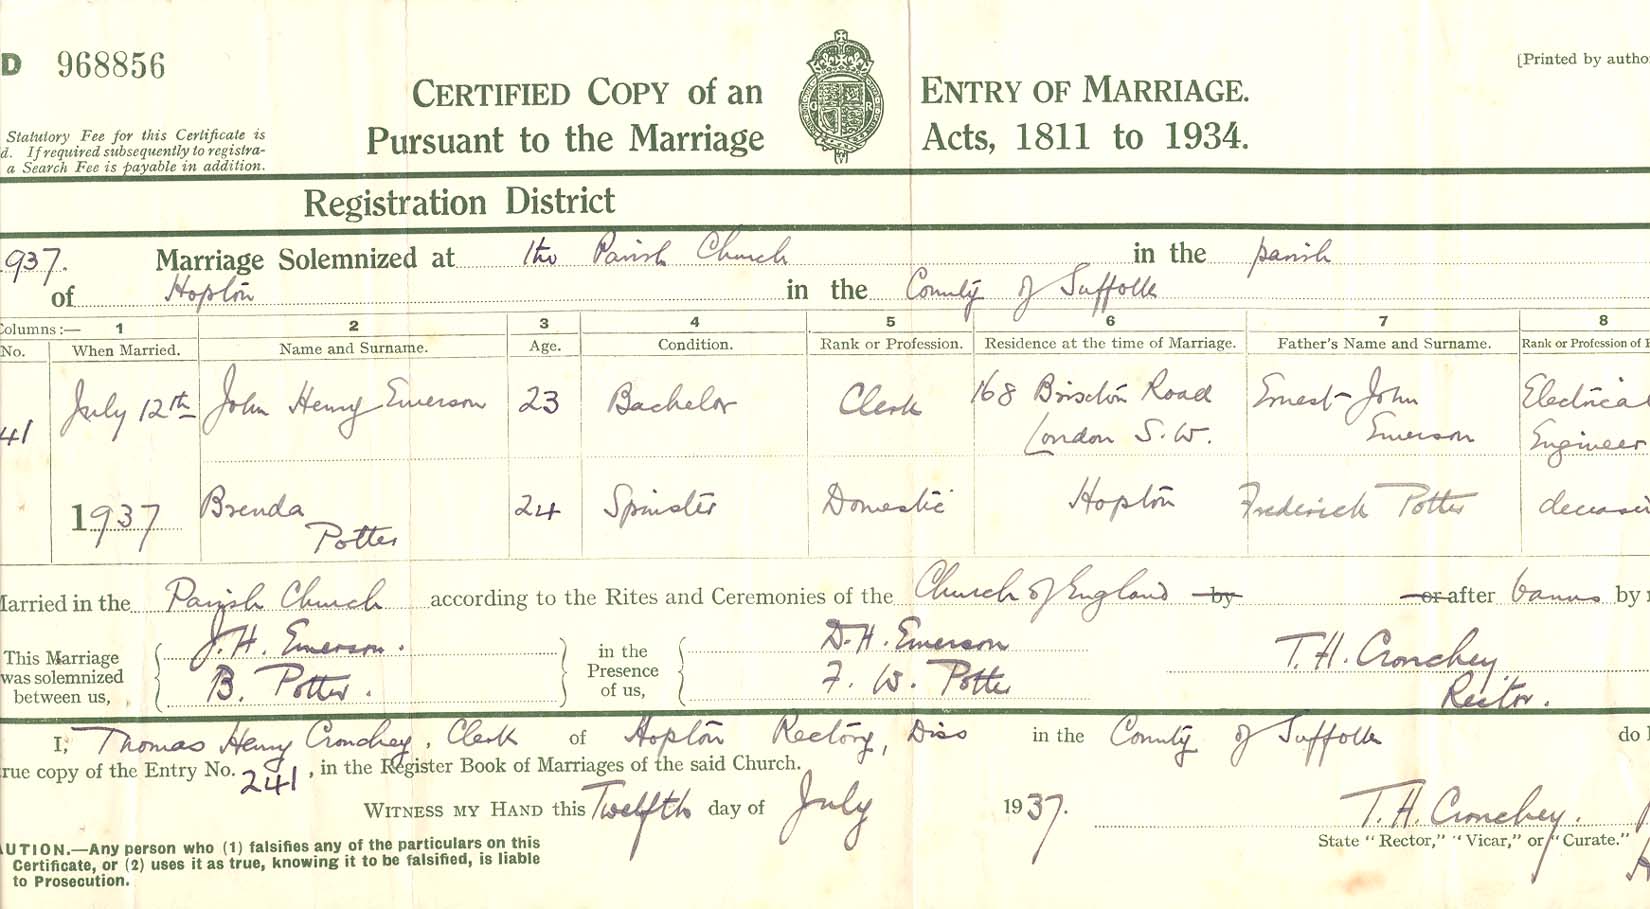 D 968856
[Printed by autho
CERTIFIED COPY of an ENTRY OF MARRIAGE.
Pursuant to the Marriage Acts, 1811 to 1934.
G R
Statutory Fee for this Certificate is
d. If required subsequently to registra-
a Search Fee is payable in addition.
Registration District
937. Marriage Solemnized at the Parish Church in the parish
of Hopton in the County of Suffolk
Columns :— 1 2 3 4 5 6 7 8
No. When Married. Name and Surname. Age. Condition. Rank or Profession. Residence at the time of Marriage. Father's Name and Surname. Rank or Profession of F
41 July 12th John Henry Emerson 23 Bachelor Clerk 168 Brixton Road Ernest John Electrical
London S.W. Emerson Engineer
1937 Brenda 24 Spinster Domestic Hopton Frederick Potter deceased
Potter
Married in the Parish Church according to the Rites and Ceremonies of the Church of England by or after banns by
This Marriage was solemnized between us, J. H. Emerson. B. Potter. in the Presence of us, D. H. Emerson F. W. Potter T. H. Cronchey Rector.
I, Thomas Henry Cronchey, Clerk of Hopton Rectory, Diss in the County of Suffolk do
rue copy of the Entry No. 241, in the Register Book of Marriages of the said Church.
WITNESS MY HAND this Twelfth day of July 1937. T. H. Cronchey.
State "Rector," "Vicar," or "Curate."
UTION.—Any person who (1) falsifies any of the particulars on this
Certificate, or (2) uses it as true, knowing it to be falsified, is liable
to Prosecution.